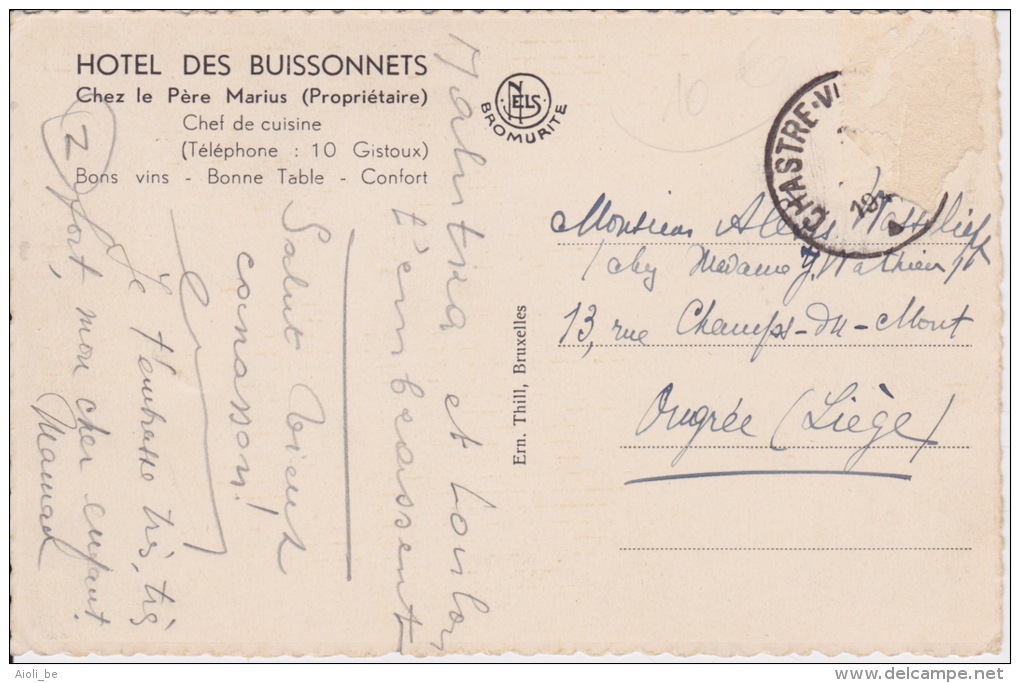 HOTEL DES BUISSONNETS
Chez le Père Marius (Propriétaire)
Chef de cuisine
(Téléphone : 10 Gistoux)
Bons vins - Bonne Table - Confort
2
NELS
BROMURITE
10
CHASTRE-VI
19
Ern. Thill, Bruxelles
et Loulou
t'embrassent
Salut vieux
canasson!
Je t'embrasse très, très
fort, mon cher enfant.
Maman
Monsieur Alexis Wassilieff
chez Madame J. Mathieu
13, rue Champs-du-Mont
Ougrée (Liège)
Aioli_be
delcampe.net